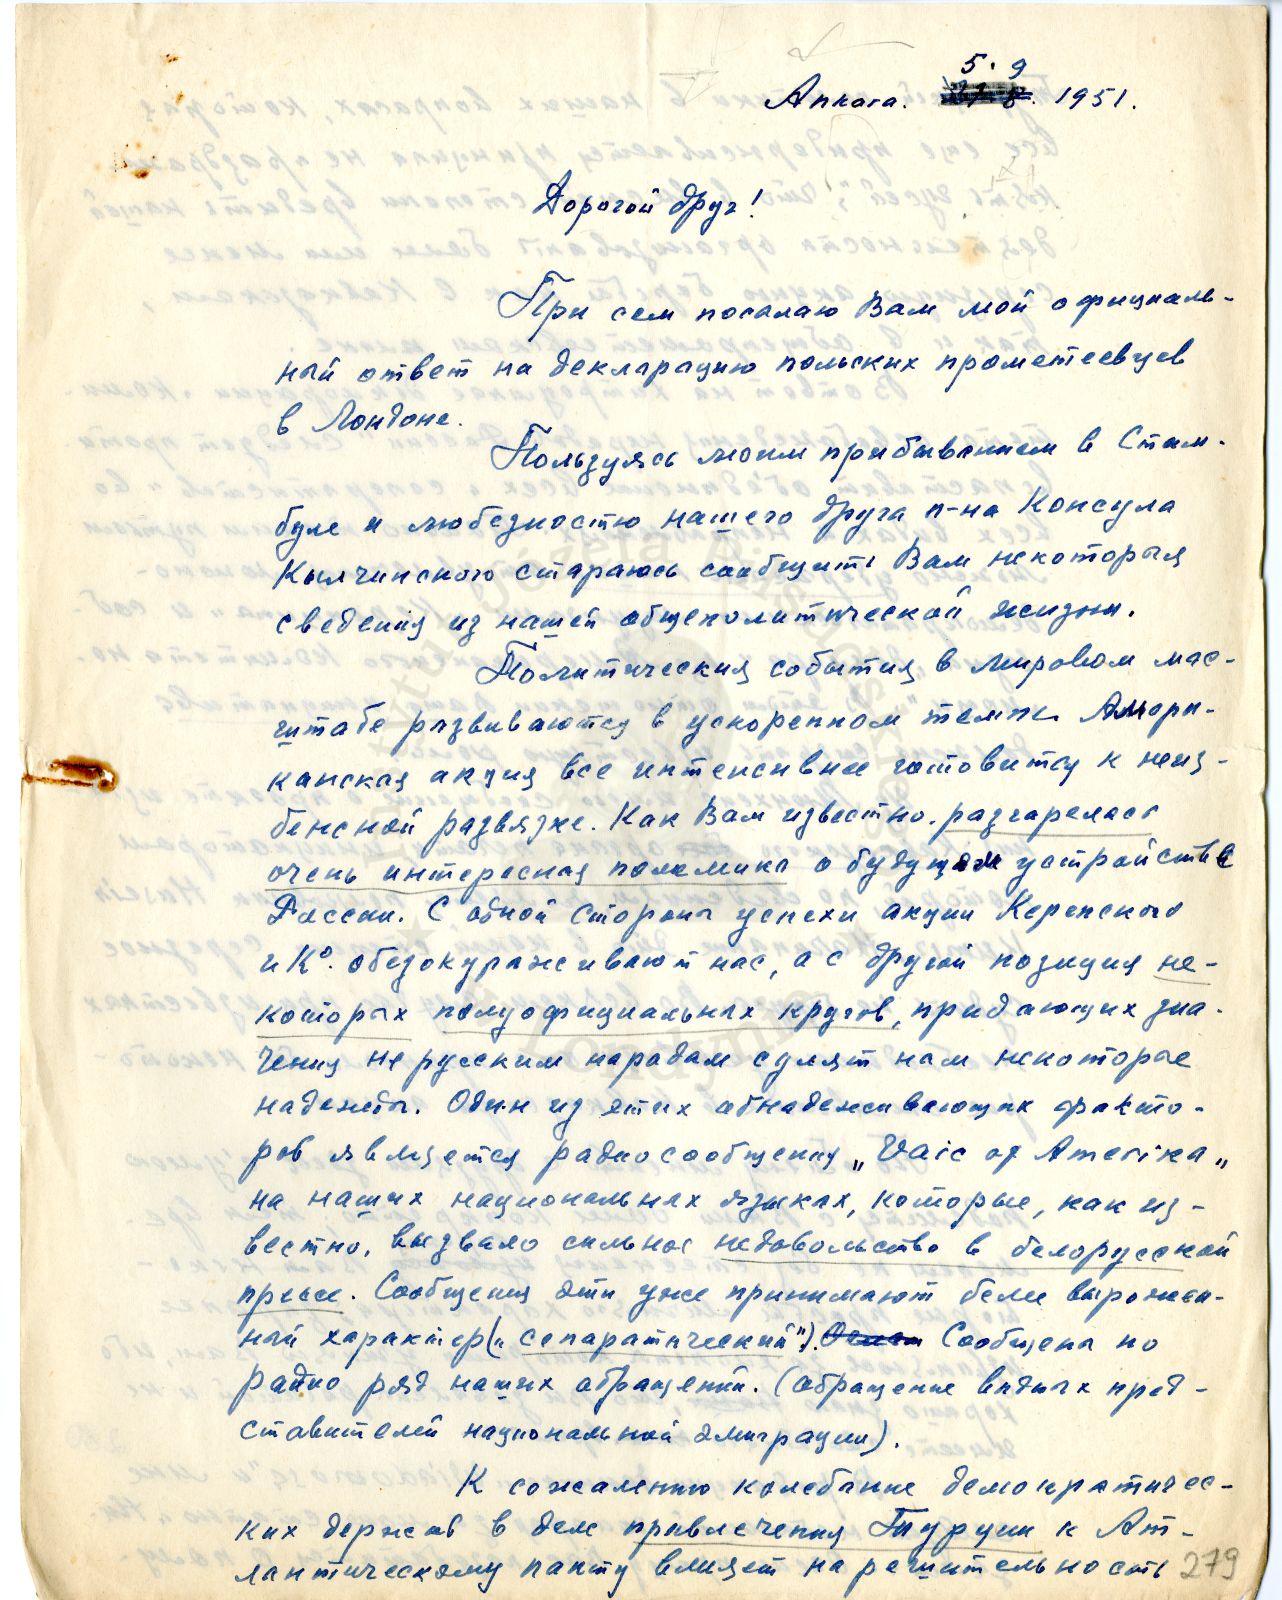 5.9
Анкага. 1951.
Дорогой друг!
При сем посалаю Вам мой официаль-
ный ответ на декларацию польских прометеевцев
в Лондоне.
Пользуясь моим прибыванием в Стам-
буле и любезностю нашего друга п-на Консула
Кылчинского стараюсь сообщить Вам некоторыя
сведения из нашей общеполитической жизни.
Политическия события в мировом мас-
штабе развиваются в ускоренном темпе. Амери-
канская акция все интенсивнее готовится к неиз-
бенсной развязке. Как Вам известно, разгарелась
очень интересная полемика о будущем устройстве
России. С одной стороны успехи акции Керенского
и К⁰. обезокураживают нас, а с другой позиция не-
которых полуофициальных кругов, придающих зна-
чения не русским народам сулят нам некоторые
надежды. Один из етих абнадеживающих факто-
ров является радиосообщения „Vaic of Amerika„
на наших национальных языках, которые, как из-
вестно, вызвало сильное недовольство в белорусской
прессе. Сообщения эти уже принимают боле выражен-
ный характер („сепаратический"). Сообщены по
радио ряд наших обращений. (обращение видных пред-
ставителей национальной эмиграции).
К сожалению колебание демократичес-
ких держав в деле привлечения Турции к Ат-
лантическому пакту влияет на решительность
279